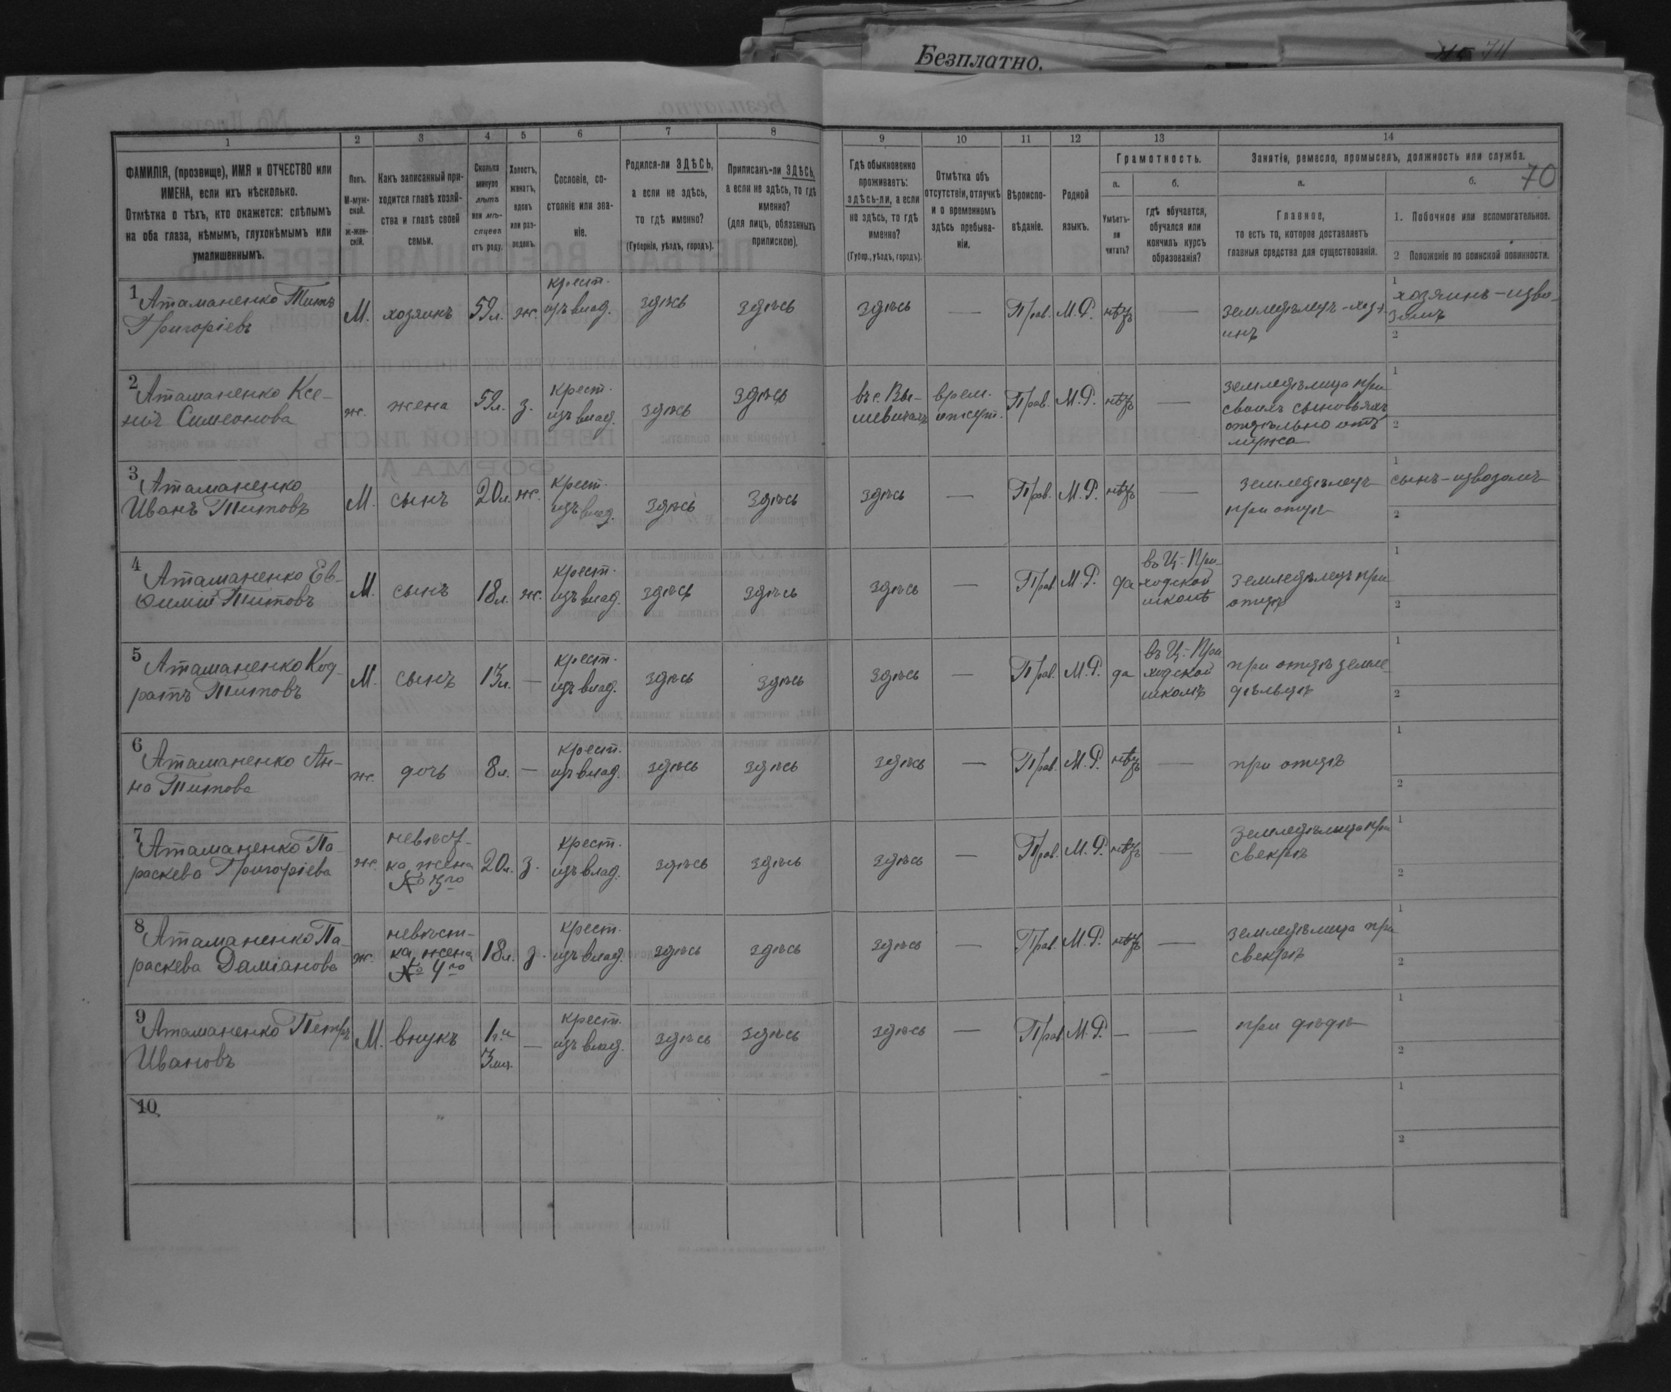 Безплатно.
70
1 2 3 4 5 6 7 8 9 10 11 12 13 14
ФАМИЛІЯ, (прозвище), ИМЯ и ОТЧЕСТВО или
ИМЕНА, если ихъ нѣсколько.
Отмѣтка о тѣхъ, кто окажется: слѣпымъ
на оба глаза, нѣмымъ, глухонѣмымъ или
умалишеннымъ.
Полъ.
М-муж-
ской.
ж-жен-
скій.
Какъ записанный при-
ходится главѣ хозяй-
ства и главѣ своей
семьи.
Сколько
минуло
лѣтъ
или мѣ-
сяцевъ
отъ роду.
Холостъ,
женатъ,
вдовъ
или раз-
веденъ.
Сословіе, со-
стояніе или зва-
ніе.
Родился-ли ЗДѢСЬ,
а если не здѣсь,
то гдѣ именно?
(Губернія, уѣздъ, городъ).
Приписанъ-ли ЗДѢСЬ,
а если не здѣсь, то гдѣ
именно?
(для лицъ, обязанныхъ
припискою).
Гдѣ обыкновенно
проживаетъ:
здѣсь-ли, а если
не здѣсь, то гдѣ
именно?
(Губер., уѣздъ, городъ).
Отмѣтка объ
отсутствіи, отлучкѣ
и о временномъ
здѣсь пребыва-
ніи.
Вѣроиспо-
вѣданіе.
Родной
языкъ.
Грамотность.
а.
Умѣетъ-
ли
читать?
б.
гдѣ обучается,
обучался или
кончилъ курсъ
образованія?
Занятіе, ремесло, промыселъ, должность или служба.
а.
Главное,
то есть то, которое доставляетъ
главныя средства для существованія.
б.
1. Побочное или вспомогательное.
2 Положеніе по воинской повинности.
1 Атаманенко Титъ
Григоріевъ
М. хозяинъ 59 л. ж. крест.
изъ влад. здѣсь здѣсь здѣсь — Прав. М.Р. нѣтъ — земледѣлецъ - хозя-
инъ
1 хозяинъ - изво-
зомъ
2
2 Атаманенко Ксе-
нія Симеонова
ж. жена 59 л. з. крест.
изъ влад. здѣсь здѣсь въ с. Вы-
шевичахъ врем.
отсут. Прав. М.Р. нѣтъ — земледѣлица при
своихъ сыновьяхъ
отдѣльно отъ
мужа
1
2
3 Атаманенко
Иванъ Титовъ
М. сынъ 20 л. ж. крест.
изъ влад. здѣсь здѣсь здѣсь — Прав. М.Р. нѣтъ — земледѣлецъ
при отцѣ
1 сынъ - извозомъ
2
4 Атаманенко Ев-
фимій Титовъ
М. сынъ 18 л. ж. крест.
изъ влад. здѣсь здѣсь здѣсь — Прав. М.Р. да въ Ц.-При-
ходской
школѣ земледѣлецъ при
отцѣ
1
2
5 Атаманенко Код-
ратъ Титовъ
М. сынъ 13 л. — крест.
изъ влад. здѣсь здѣсь здѣсь — Прав. М.Р. да въ Ц.-При-
ходской
школѣ при отцѣ земле-
дѣльцѣ
1
2
6 Атаманенко Ан-
на Титова
ж. дочь 8 л. — крест.
изъ влад. здѣсь здѣсь здѣсь — Прав. М.Р. нѣтъ — при отцѣ
1
2
7 Атаманенко Па-
раскева Григоріева
ж. невѣст-
ка, жена
№ 3го 20 л. з. крест.
изъ влад. здѣсь здѣсь здѣсь — Прав. М.Р. нѣтъ — земледѣлица при
свекрѣ
1
2
8 Атаманенко Па-
раскева Даміанова
ж. невѣст-
ка, жена
№ 4го 18 л. з. крест.
изъ влад. здѣсь здѣсь здѣсь — Прав. М.Р. нѣтъ — земледѣлица при
свекрѣ
1
2
9 Атаманенко Петръ
Ивановъ
М. внукъ 1 г. и
3 мѣс. — крест.
изъ влад. здѣсь здѣсь здѣсь — Прав. М.Р. — — при дѣдѣ
1
2
10
1
2